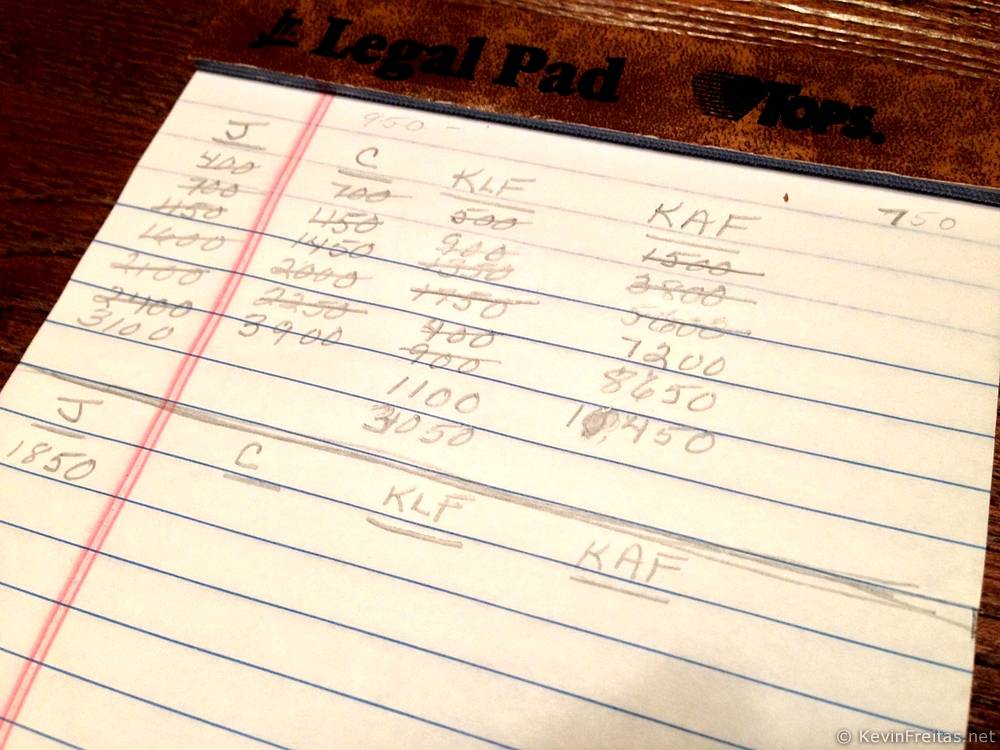 Jr. Legal Pad
TOPS.
950 -
750
J C KLF KAF
400 700 500 1500
700 450 900 3800
450 1450 1350 5600
1600 2000 1750 7200
2100 2250 400 8650
2400 3900 900 10,450
3100 1100
3050
J C KLF KAF
1850
© KevinFreitas.net